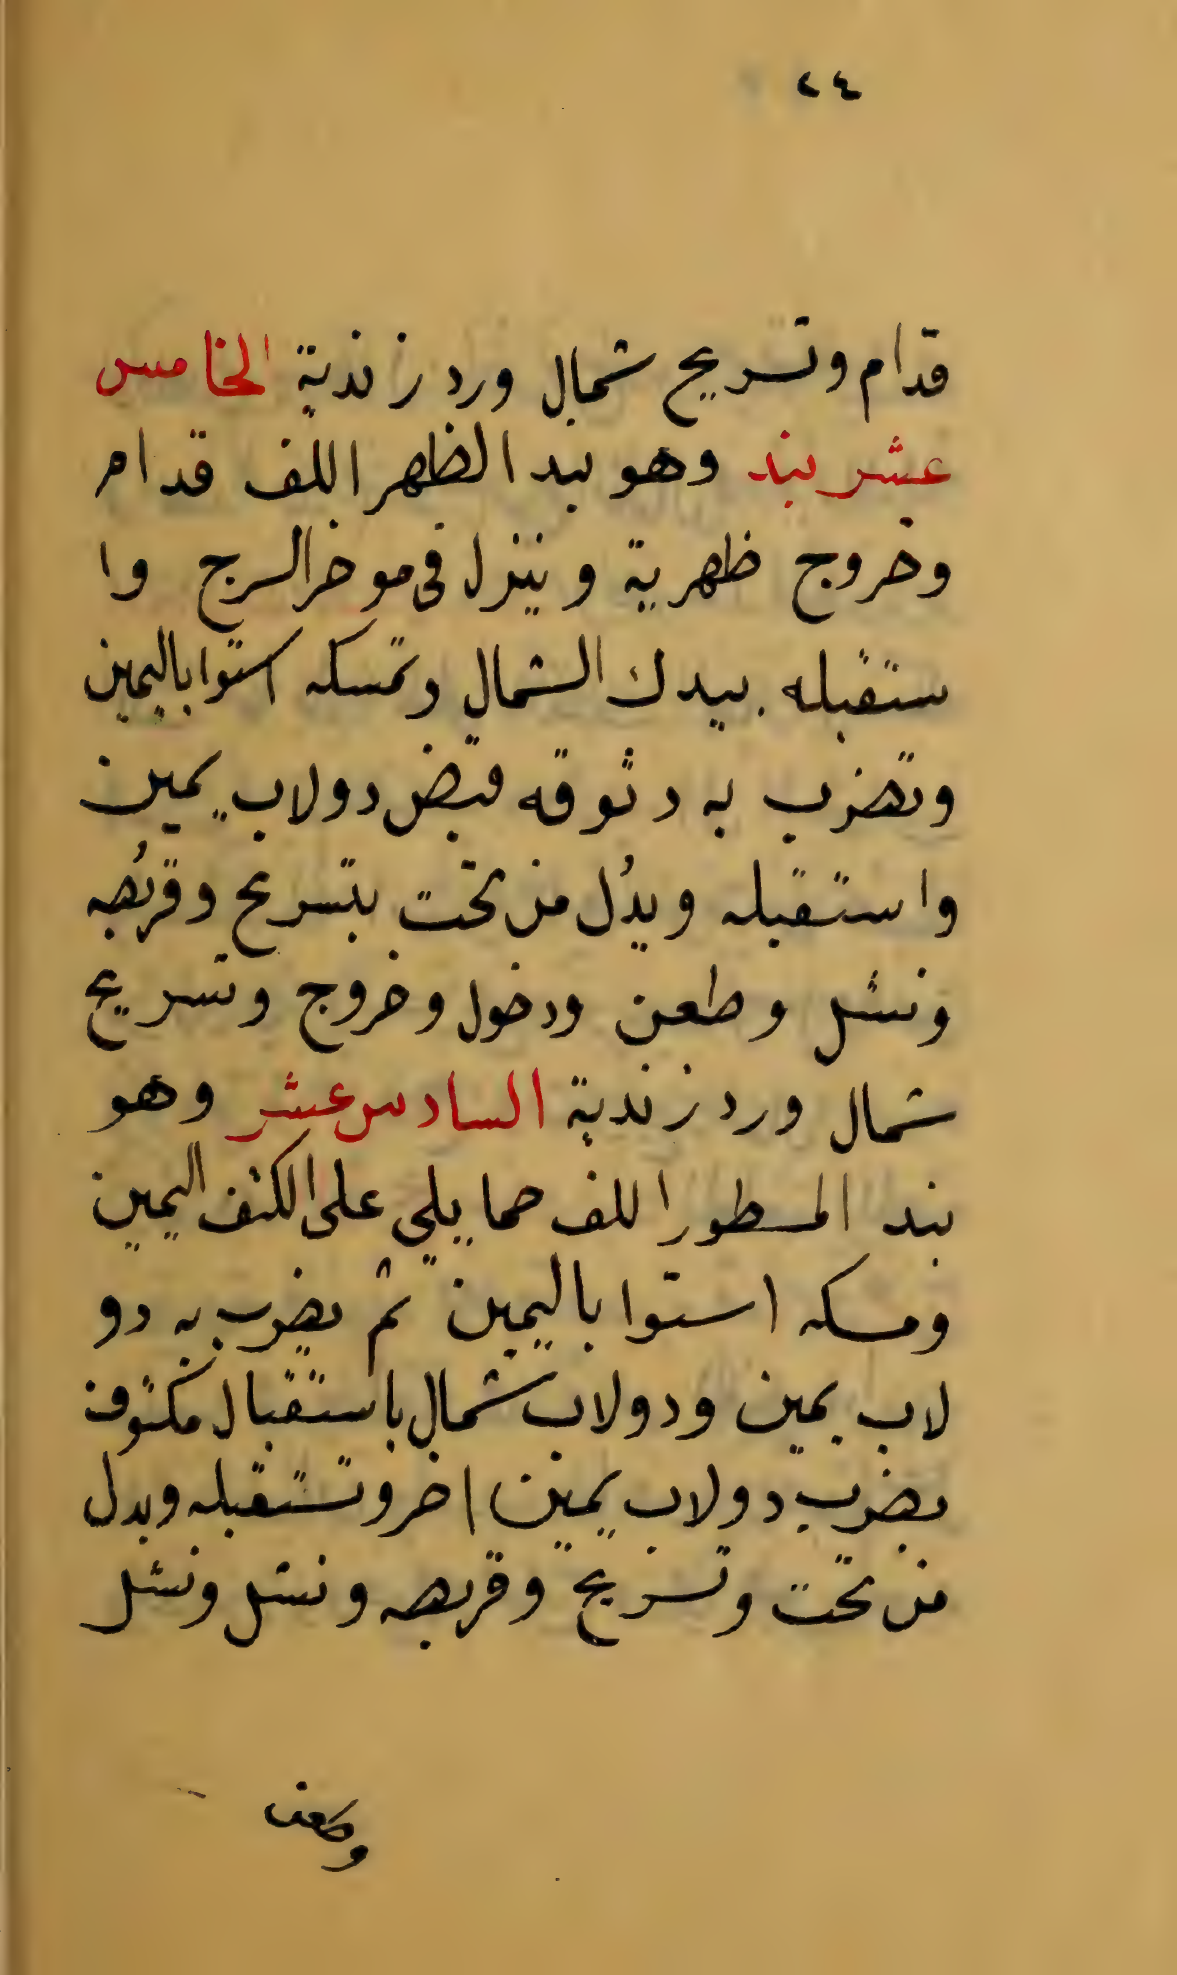 ٢٤
قدام وتسريح شمال ورد زندية الخامس
عشر بند وهو بند الظهر اللف قدام
وخروج ظهرية وينزل فى موخر السرج وا
ستقبله بيدك الشمال وتمسكه استوا باليمين
وتضرب به دثوقه قبض دولاب يمين
واستقبله ويدُل من تحت بتسريح وقربُصه
ونشل وطعن ودخول وخروج وتسريح
شمال ورد زندية السادس عشر وهو
بند المسطور اللف حمايلي على الكتف اليمين
ومسكه استوا باليمين ثم يضرب به دو
لاب يمين ودولاب شمال باستقبال مكتوف
يضرب دولاب يمين اخر وتستقبله ويدل
من تحت وتسريح وقربصه ونشل ونشل
وطعن